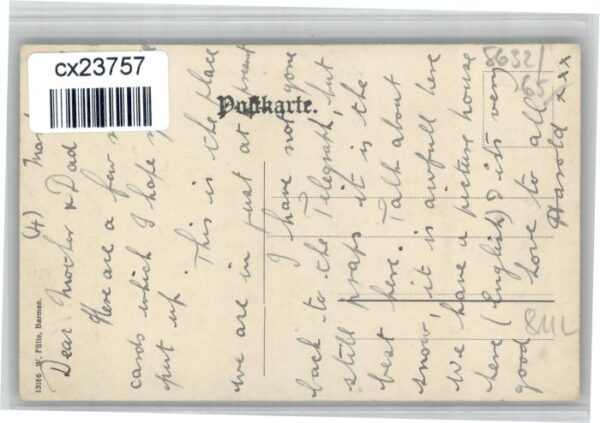 cx23757
Postkarte.
(4)
Dear Mother & Dad
Here are a few
cards which I hope
put up
This is the place
we are in just at present
I have not gone
back to the Telegraph, but
still praps it is the
best here. Talk about
snow, it is awfull here
We have a picture house
here (English) & its very
good
Love to all
Harold xxx
8632/
65
13186 W. Fülle, Barmen.